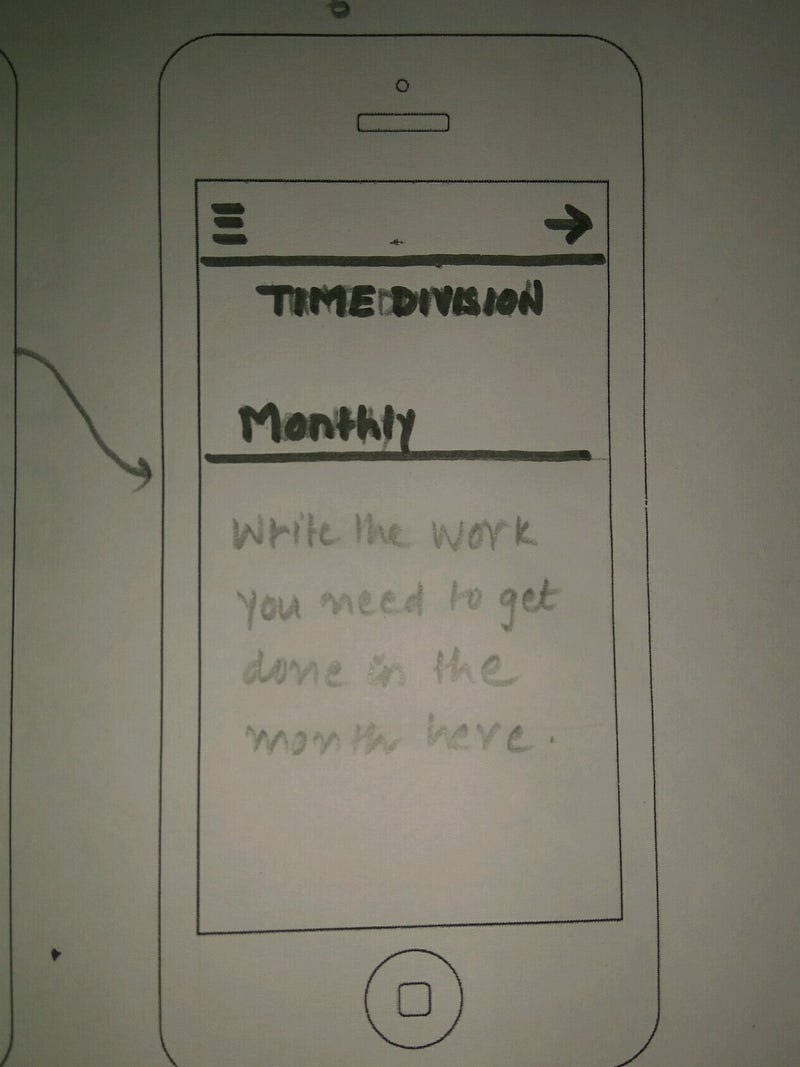 TIME DIVISION
Monthly
Write the work
you need to get
done in the
month here.